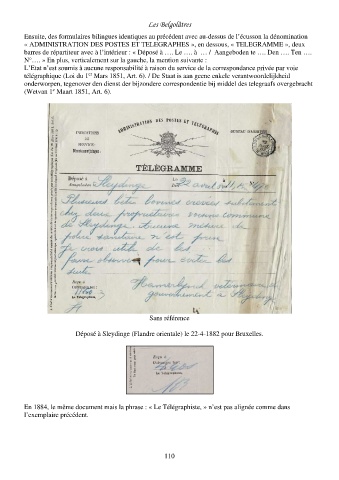 Les Belgolâtres
Ensuite, des formulaires bilingues identiques au précédent avec au-dessus de l’écusson la dénomination
« ADMINISTRATION DES POSTES ET TELEGRAPHES », en dessous, « TELEGRAMME », deux
barres de répartiteur avec à l’intérieur : « Déposé à …. Le …. à … / Aangeboden te …. Den …. Ten ….
N°…. » En plus, verticalement sur la gauche, la mention suivante :
L’Etat n’est soumis à aucune responsabilité à raison du service de la correspondance privée par voie
télégraphique (Loi du 1er Mars 1851, Art. 6). / De Staat is aan geene enkele verantwoordelijkheid
onderworpen, tegenover den dienst der bijzondere correspondentie bij middel des telegraafs overgebracht
(Wetvan 1e Maart 1851, Art. 6).
ADMINISTRATION DES POSTES ET TÉLÉGRAPHES
INDICATIONS
DE
SERVICE
TÉLÉGRAMME
Déposé à Sleydinge 22 avril
Plusieurs bêtes bovines
chez deux propriétaires commune
de Sleydinge
police sanitaire n'est
je crois utile de les
faire pour éviter les
suites
vétérinaire
gouvernement à Sleydinge
Sans référence
Déposé à Sleydinge (Flandre orientale) le 22-4-1882 pour Bruxelles.
Le Télégraphiste,
En 1884, le même document mais la phrase : « Le Télégraphiste, » n’est pas alignée comme dans
l’exemplaire précédent.
110